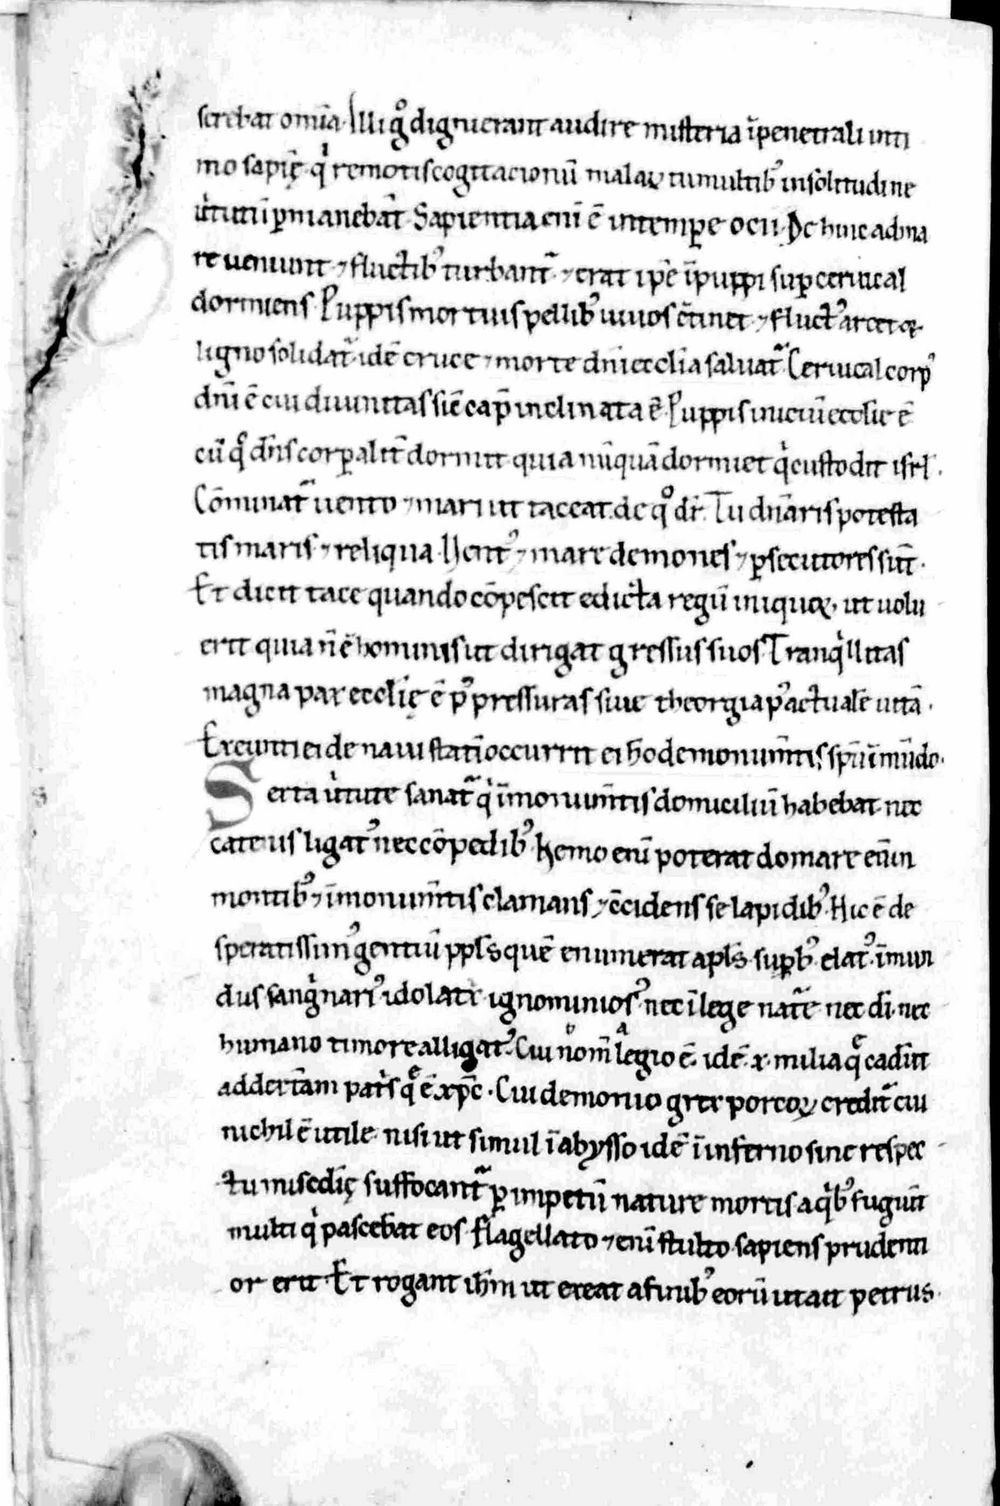 serebat omīa. Illi g̊ digni erant audire misteria ī penetrali inti
mo sapię̄ qͥ remotis cogitacionū malaꝝ tumultibꝰ in solitudine
uͥtutū ꝑmanebāt. Sapientia enī ē in tempe̅ ocii. Dehinc ad ma
re ueniunt ⁊ fluctibꝰ turbant᷑. ⁊ erat ip̄e ī puppi suꝑ ceruical
dormiens. Puppis mortuis pellibꝰ uiuos ↄ̄tinet ⁊ fluctꝰ arcet ⁊
ligno solidat᷑. idē cruce ⁊ morte dn̄i ecclīa saluat᷑. Ceruical corpꝰ
dn̄i ē cui diuinitas sic̄ cap̄ inclinata ē. Puppis iniciū ecclsie ē
cū q̊ dn̄s corꝑalit̄ dormit quia nūquā dormiet qͥ custodit isrl̄.
Cōminat᷑ uento ⁊ mari ut taceat. de q̊ dr̄. Tu dn̄aris potesta
tis maris ⁊ reliqua. Uentꝰ ⁊ mare demones ⁊ ꝑsecutores sūt.
Et dicit tace quando cōpescit edicta regū iniquoꝝ, ut uolu
erit quia n̄ ē hominis ut dirigat gressus suos. Tranqͥllitas
magna pax ecclīę ē pꝰ pressuras siue theorgia pꝰ actualē uitā.
Exeunti ei de naui statī occurrit ei hō de monum̄tis ī sp̄u īmūdo.
Serta uͥtute sanat᷑ qͥ ī monum̄tis domiciliū habebat nec
catenis ligatꝰ nec cōpedibꝰ. Nemo enī poterat domare eū in
montibꝰ ⁊ ī monum̄tis clamans ⁊ ↄ̄cidens se lapidibꝰ. Hic ē de
speratissimꝰ gentiū pp̄ls quē enumerat apl̄s. suꝑbꝰ. elatꝰ. īmun
dus sangͥnariꝰ idolatͬ. ignominiosꝰ. nec ī lege natͬe nec dī. nec
humano timore alligatꝰ. Cui nom̄ legio ē. idē .x. milia q̄ cadūt
a ddextͬam partͥs q̄ ē xp̄c. Cui demonio grex porcoꝝ credit᷑ cui
nichil ē utile. nisi ut simul ī abysso idē ī inferno sine respec
tu misedīę suffocant᷑ ꝑ impetū nature mortis a qͥbꝰ fugiūt
multi qͥ pascebāt eos. flagellato ⁊ enī stulto sapiens prudenti
or erit. Et rogant ih̄m ut exeat a finibꝰ eorū ut ait petrus.